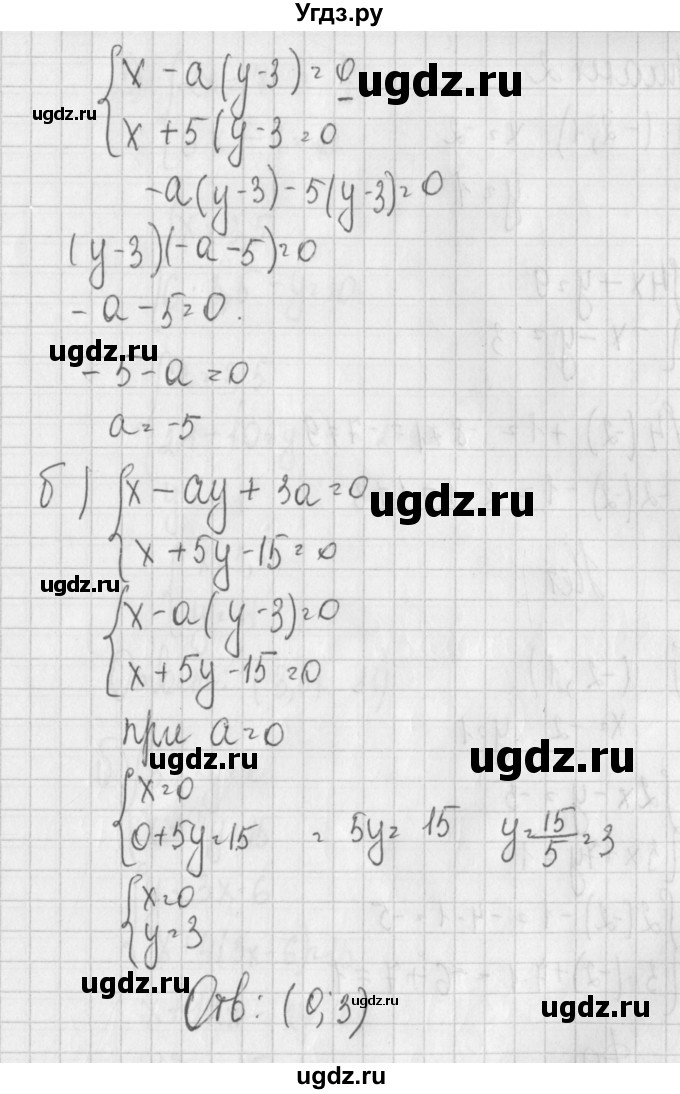 Угдз.ру
{ x - a(y-3)=0
ugdz.ru
ugdz.ru
x + 5(y-3=0
-a(y-3)-5(y-3)=0
(y-3)(-a-5)=0
-a-5=0.
ugdz.ru
-5-a=0
a=-5
б) { x-ay+3a=0
ugdz.ru
x+5y-15=0
ugdz.ru
{ x-a(y-3)=0
x+5y-15=0
при a=0
ugdz.ru
ugdz.ru
{ x=0
0+5y=15 = 5y= 15 y=15/5=3
{ x=0
y=3
ugdz.ru
Отв: (0;3)
ugdz.ru
ugdz.ru
ugdz.ru